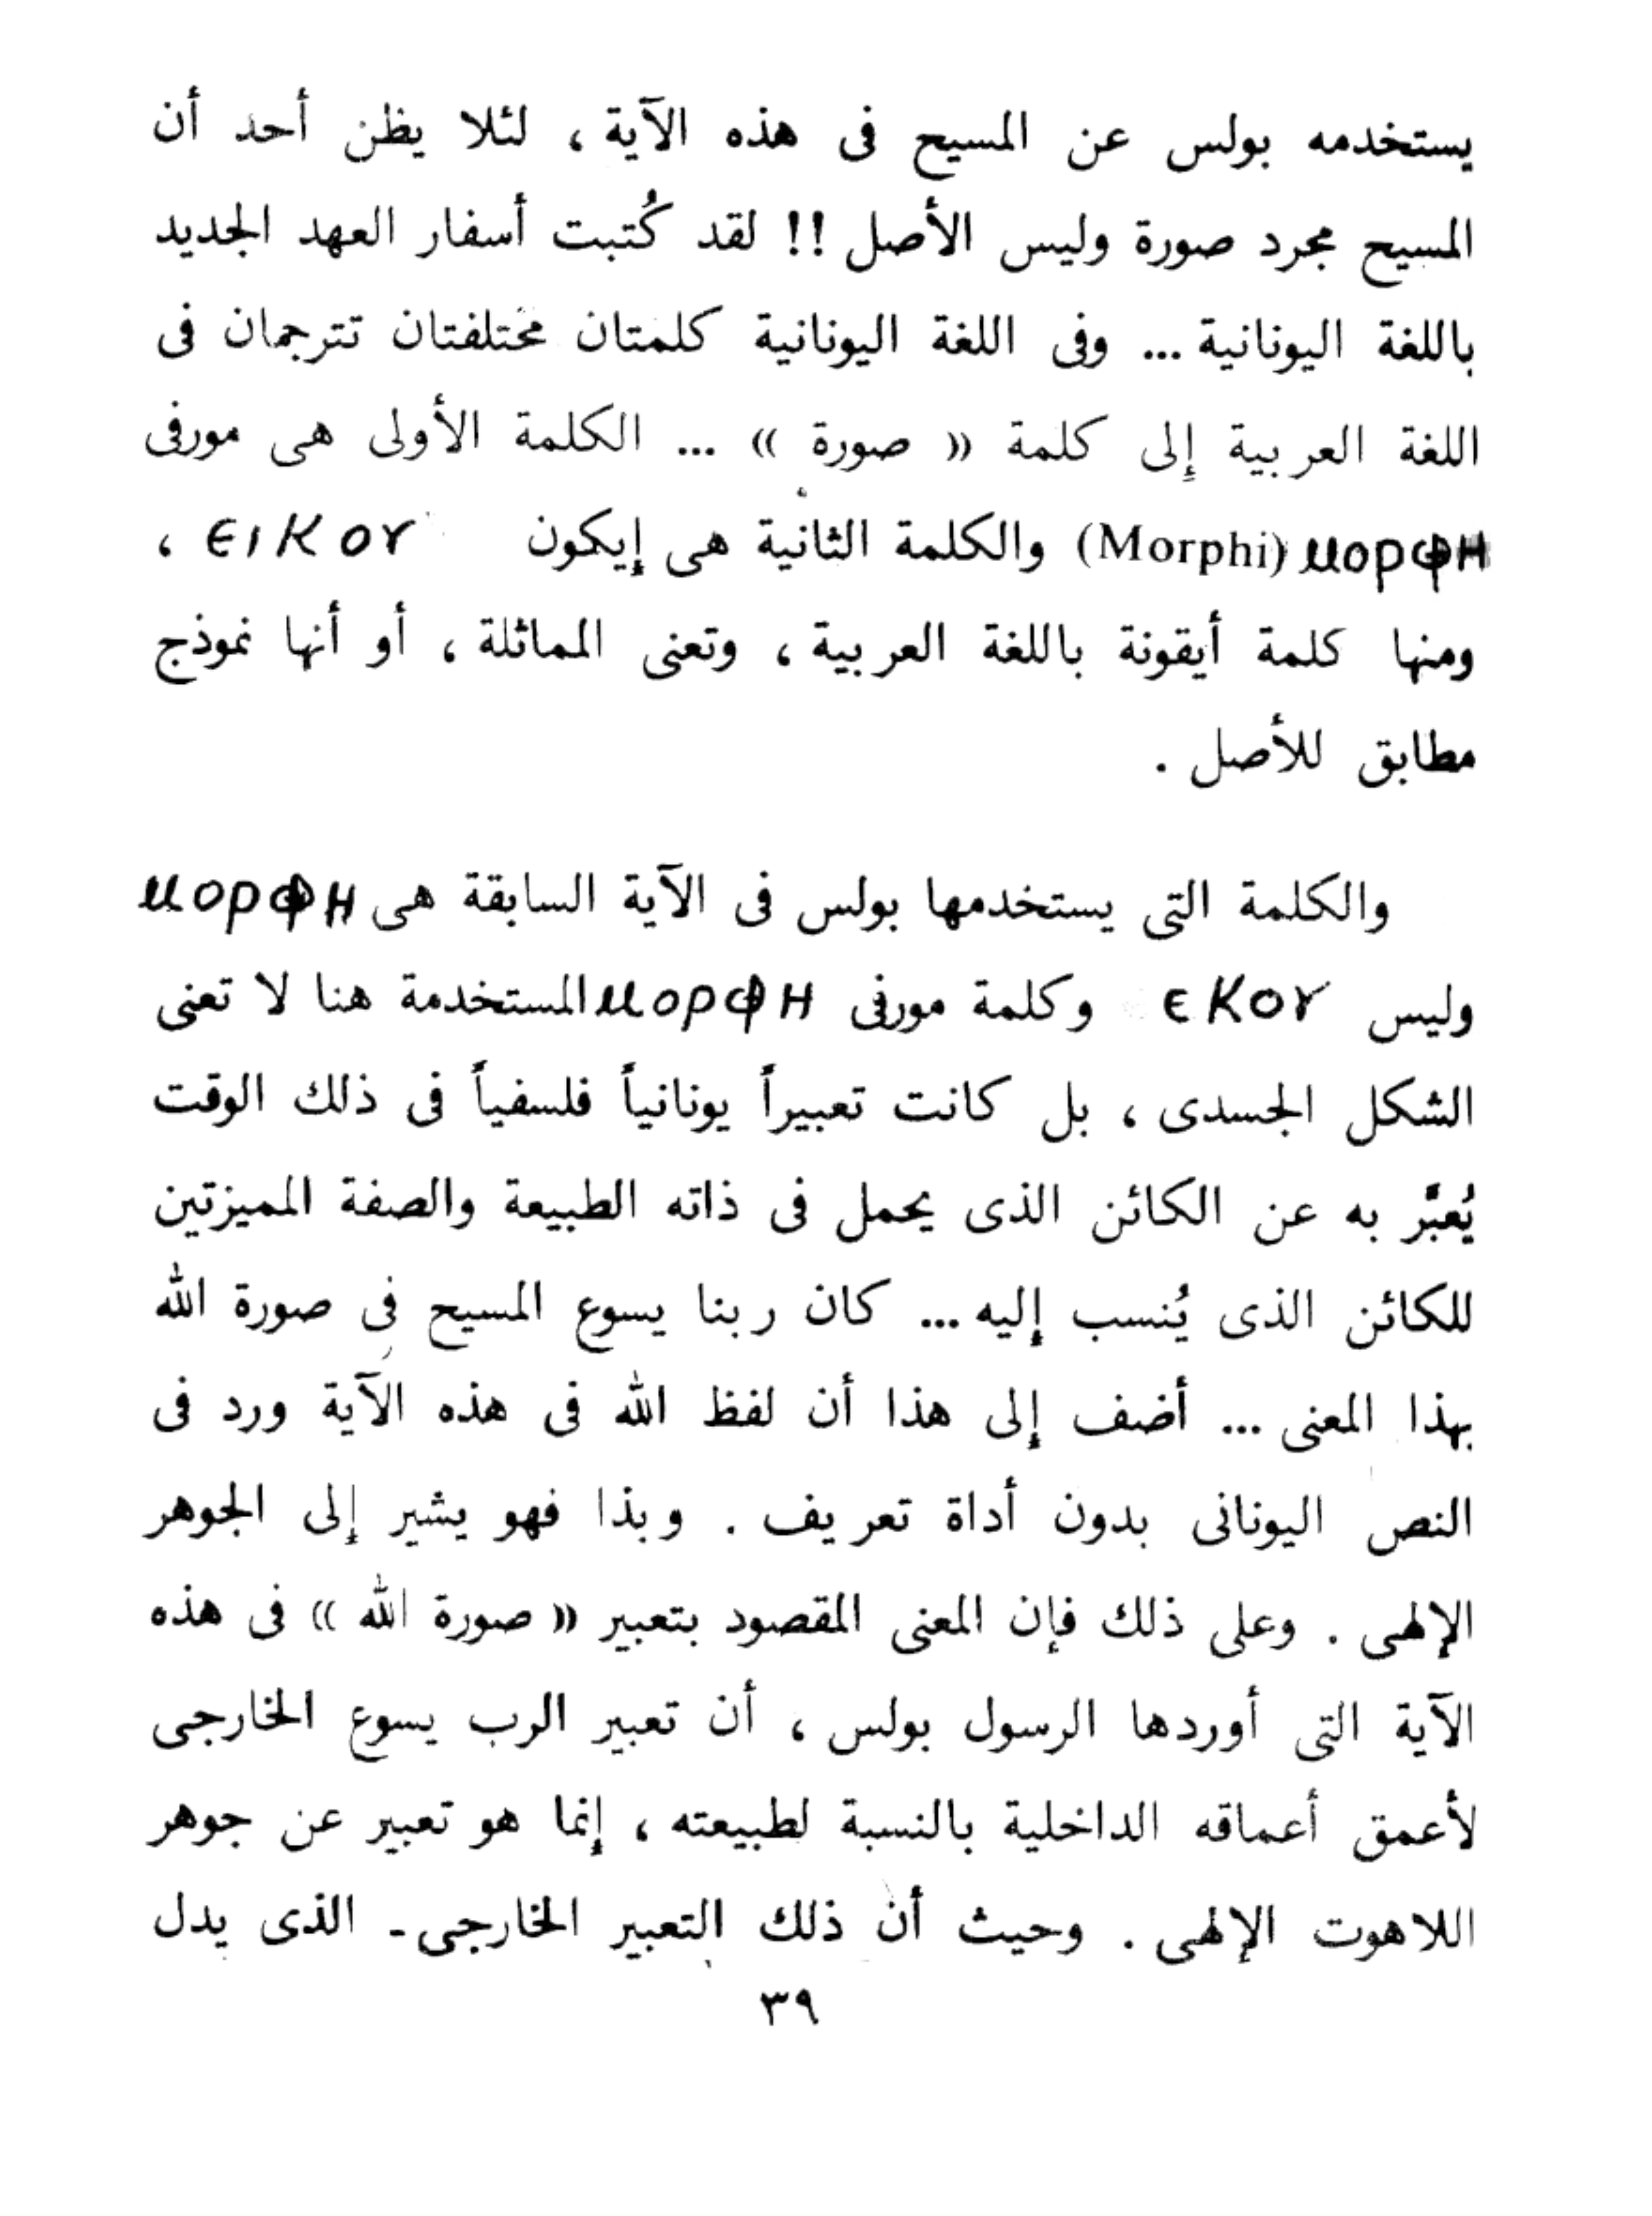 يستخدمه بولس عن المسيح فى هذه الآية ، لئلا يظن أحد أن
المسيح مجرد صورة وليس الأصل !! لقد كُتبت أسفار العهد الجديد
باللغة اليونانية ... وفى اللغة اليونانية كلمتان مختلفتان تترجمان فى
اللغة العربية إلى كلمة « صورة » ... الكلمة الأولى هى مورفى
μορφη (Morphi) والكلمة الثانية هى إيكون εικοr ،
ومنها كلمة أيقونة باللغة العربية ، وتعنى المماثلة ، أو أنها نموذج
مطابق للأصل .
والكلمة التى يستخدمها بولس فى الآية السابقة هى μορφη
وليس εκοr وكلمة مورفى μορφη المستخدمة هنا لا تعنى
الشكل الجسدى ، بل كانت تعبيراً يونانياً فلسفياً فى ذلك الوقت
يُعبَّر به عن الكائن الذى يحمل فى ذاته الطبيعة والصفة المميزتين
للكائن الذى يُنسب إليه ... كان ربنا يسوع المسيح فى صورة الله
بهذا المعنى ... أضف إلى هذا أن لفظ الله فى هذه الآية ورد فى
النص اليونانى بدون أداة تعريف . وبذا فهو يشير إلى الجوهر
الإلهى . وعلى ذلك فإن المعنى المقصود بتعبير « صورة الله » فى هذه
الآية التى أوردها الرسول بولس ، أن تعبير الرب يسوع الخارجى
لأعمق أعماقه الداخلية بالنسبة لطبيعته ، إنما هو تعبير عن جوهر
اللاهوت الإلهى . وحيث أن ذلك التعبير الخارجى ـ الذى يدل
٣٩